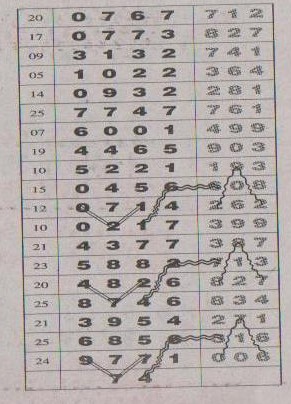 20 0 7 6 7 7 1 2
17 0 7 7 3 8 2 7
09 3 1 3 2 7 4 1
05 1 0 2 2 3 6 4
14 0 9 3 2 2 8 1
25 7 7 4 7 7 6 1
07 6 0 0 1 4 9 9
19 4 4 6 5 9 0 3
10 5 2 2 1 1 3
15 0 4 5 6 6 0 8
12 0 7 1 4 2 6 2
10 0 2 1 7 3 9 9
21 4 3 7 7 3 8 7
23 5 8 8 2 7 1 3
20 4 8 2 6 8 2 7
25 8 7 4 6 8 3 4
21 3 9 5 4 2 7 1
25 6 8 5 6 3 1 6
24 9 7 7 1 0 0 6
7 4